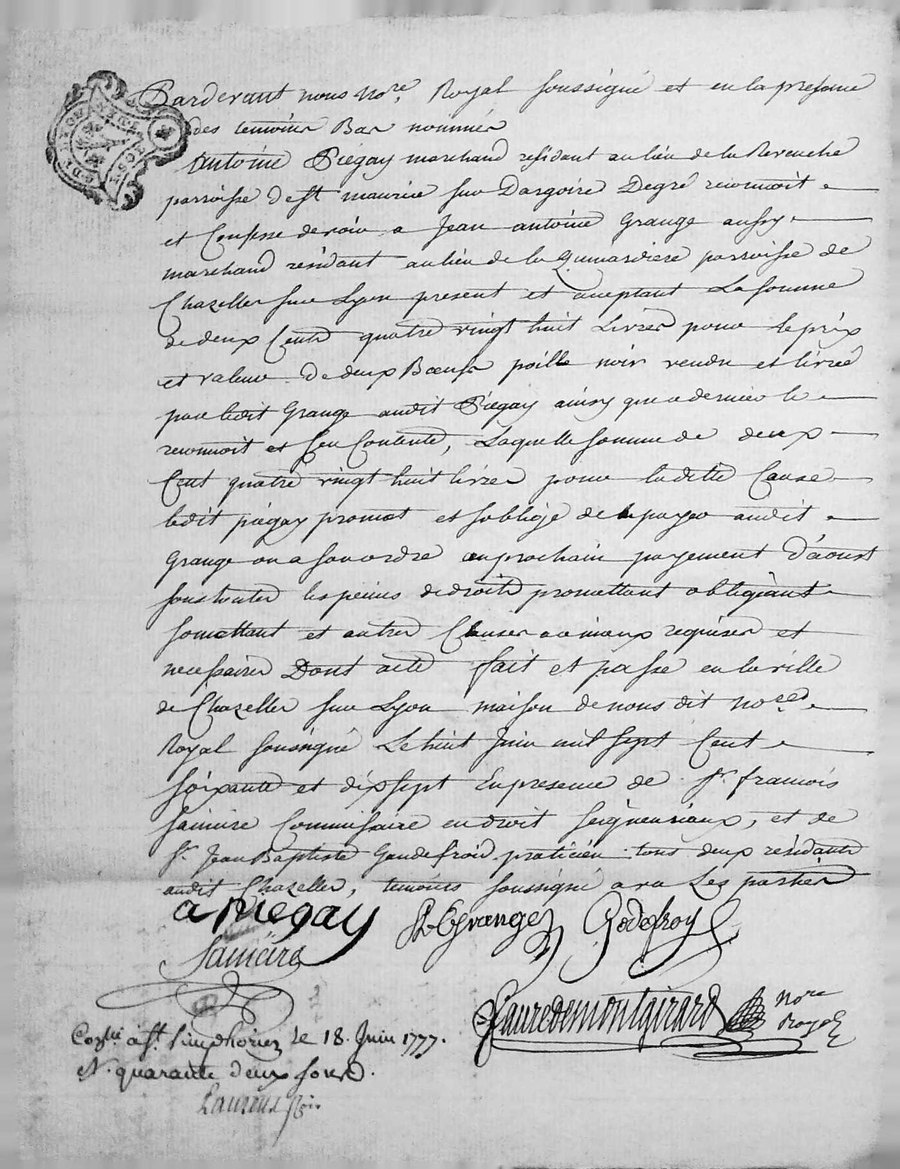 Pardevant nous nore. Royal soussigné et en la presence
des temoins Bas nommés
Antoine Piegay marchand residant au lieu de la Revenche
parroisse de st maurice sur Dargoire Degré reconnoit
et Confesse devoir a Jean antoine Grange aussy
marchand residant au lieu de la parroisse de
Chazelles sur Lyon present et aceptant La somme
de deux Cents quatre vingt huit Livres pour le prix
et valeur de deux Bœufs poille noir vendu et livré
par ledit Grange audit Piegay ainsy que ce dernier le
reconnoit et sen Contente, Laquelle somme de deux
Cent quatre vingt huit livres pour ladite Cause
ledit piégay promet et soblige de la payer audit
Grange ou a son ordre au prochain payement d'aoust
sous toutes les peines de droits promettant obligeant
somettant et autres Clauses aumieux requises et
necessaires Dont acte fait et passé en la ville
de Chazelles sur Lyon maison de nous dit nore
Royal soussigné Le huit Juin mil sept Cent
soixante et dix sept En presence de sr. francois
Commissaire en droit seigneuriaux, et de
sr. Jean Baptiste Gaudefroid praticien tous deux résidants
audit Chazelles, temoins soussigné avec Les parties
a Piegay Grange Godefroy
faure de montgirard nore
royal
Conlé à st. simphorien le 18. Juin 1777.
R. quarante deux sous.